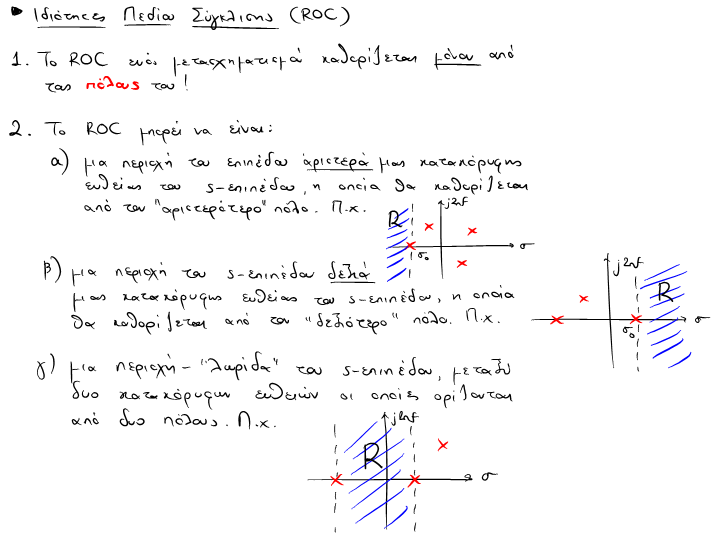 ► Ιδιότητες Πεδίου Σύγκλισης (ROC)
1. Το ROC ενός μετασχηματισμού καθορίζεται μόνον από
τους πόλους του!
2. Το ROC μπορεί να είναι:
α) μια περιοχή του επιπέδου αριστερά μιας κατακόρυφης
ευθείας του s-επιπέδου, η οποία θα καθορίζεται
από τον "αριστερότερο" πόλο. Π.χ.
R
j2πf
σ₀
σ
β) μια περιοχή του s-επιπέδου δεξιά
μιας κατακόρυφης ευθείας του s-επιπέδου, η οποία
θα καθορίζεται από τον "δεξιότερο" πόλο. Π.χ.
j2πf
R
σ₀
σ
γ) μια περιοχή - "λωρίδα" του s-επιπέδου, μεταξύ
δυο κατακόρυφων ευθειών οι οποίες ορίζονται
από δυο πόλους. Π.χ.
j2πf
R
σ